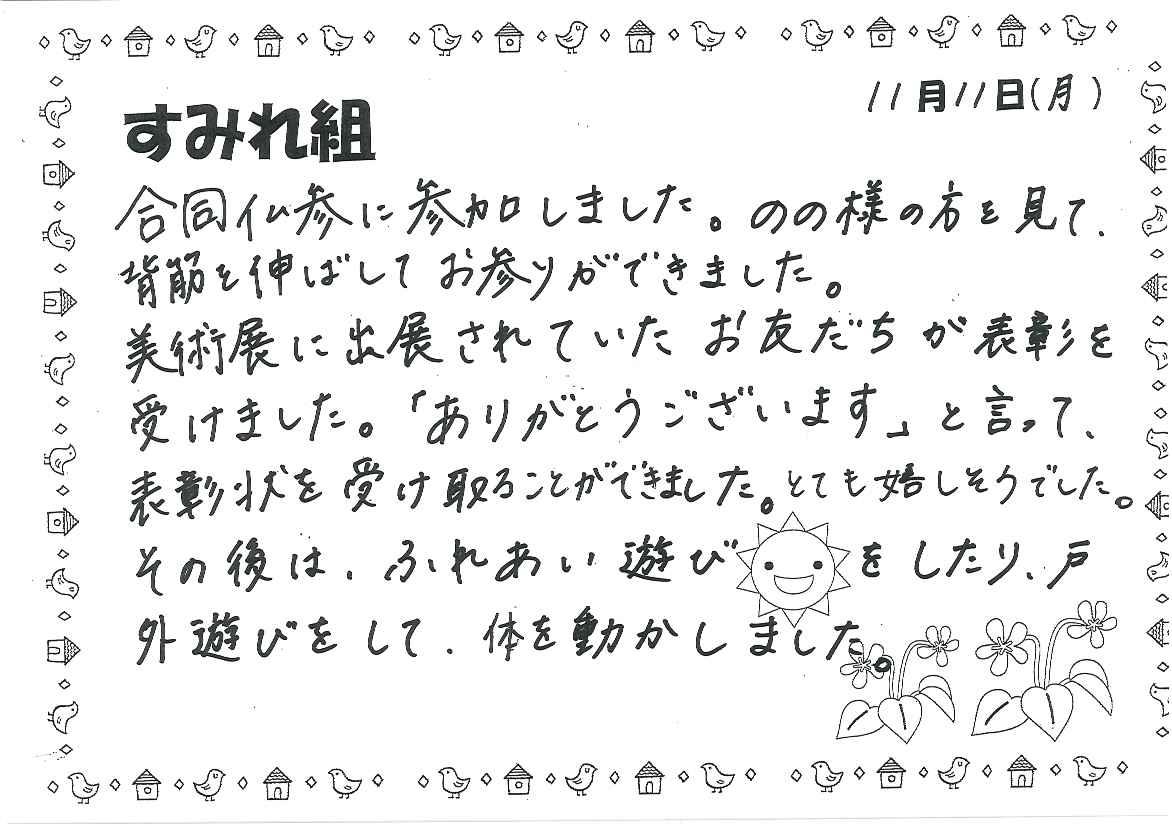 11月11日(月)
すみれ組
合同仏参に参加しました。のの様の方を見て、
背筋を伸ばしてお参りができました。
美術展に出展されていたお友だちが表彰を
受けました。「ありがとうございます」と言って、
表彰状を受け取ることができました。とても嬉しそうでした。
その後は、ふれあい遊びをしたり、戸
外遊びをして、体を動かしました。